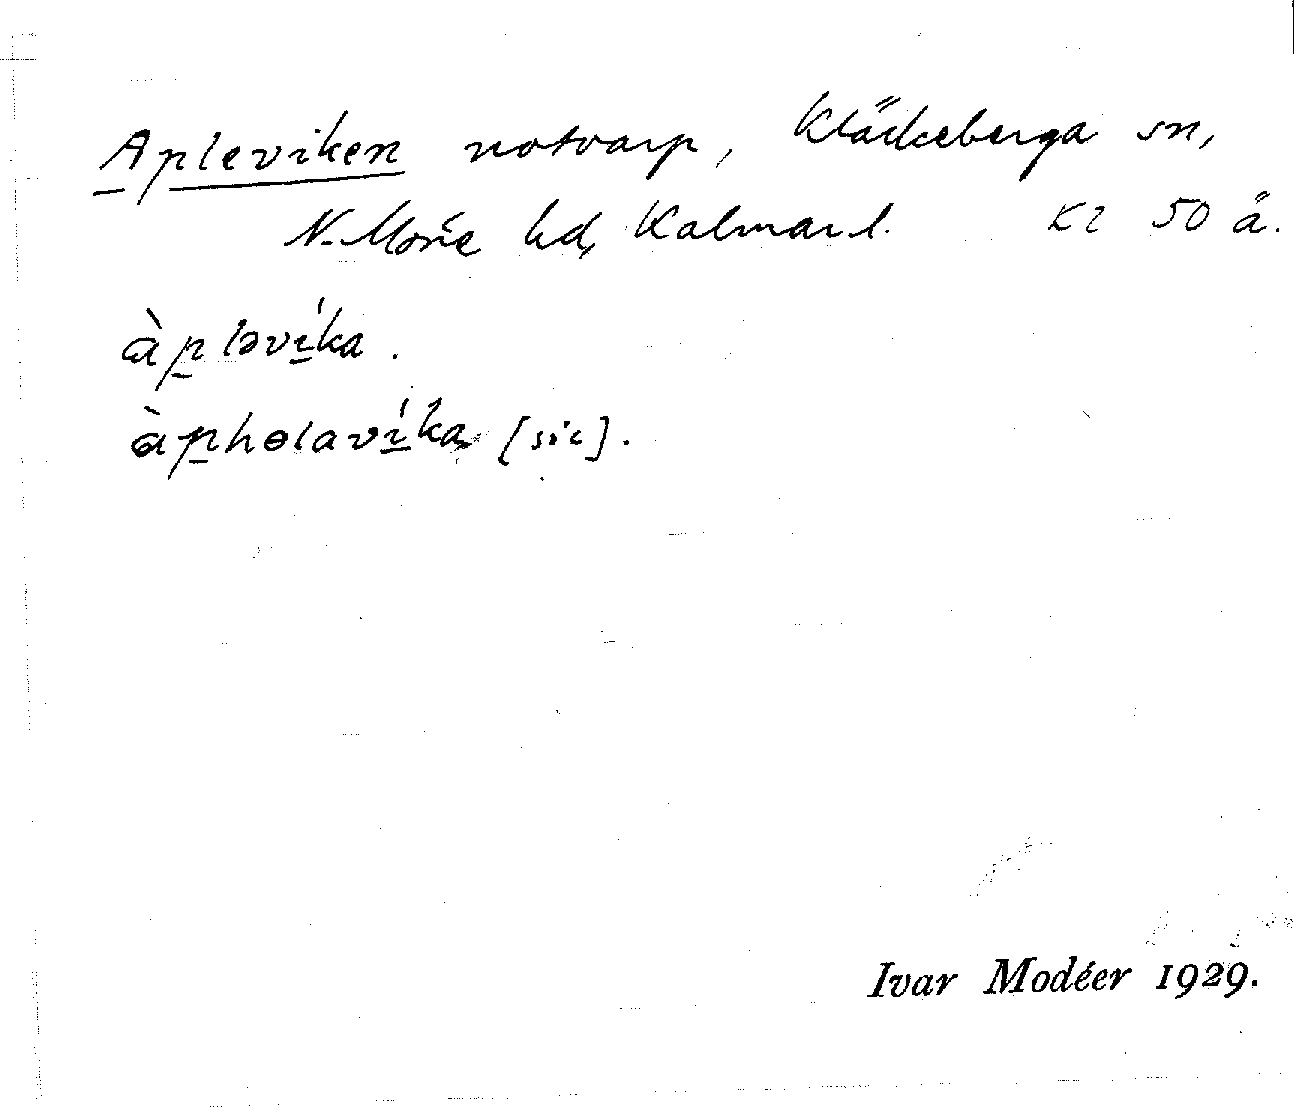 Apleviken notvarp, Kläckeberga sn,
N. Möre hd, Kalmar l. Kl 50 å.
àpləvíka.
àphɵlavíka [sic].
Ivar Modéer 1929.